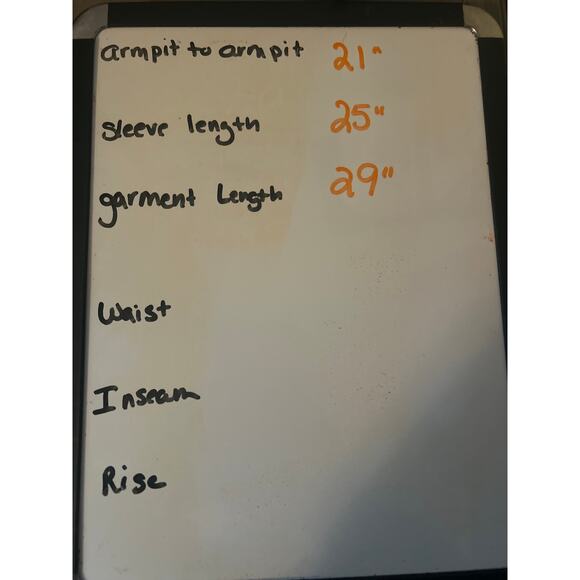 armpit to armpit 21"
sleeve length 25"
garment Length 29"
Waist
Inseam
Rise